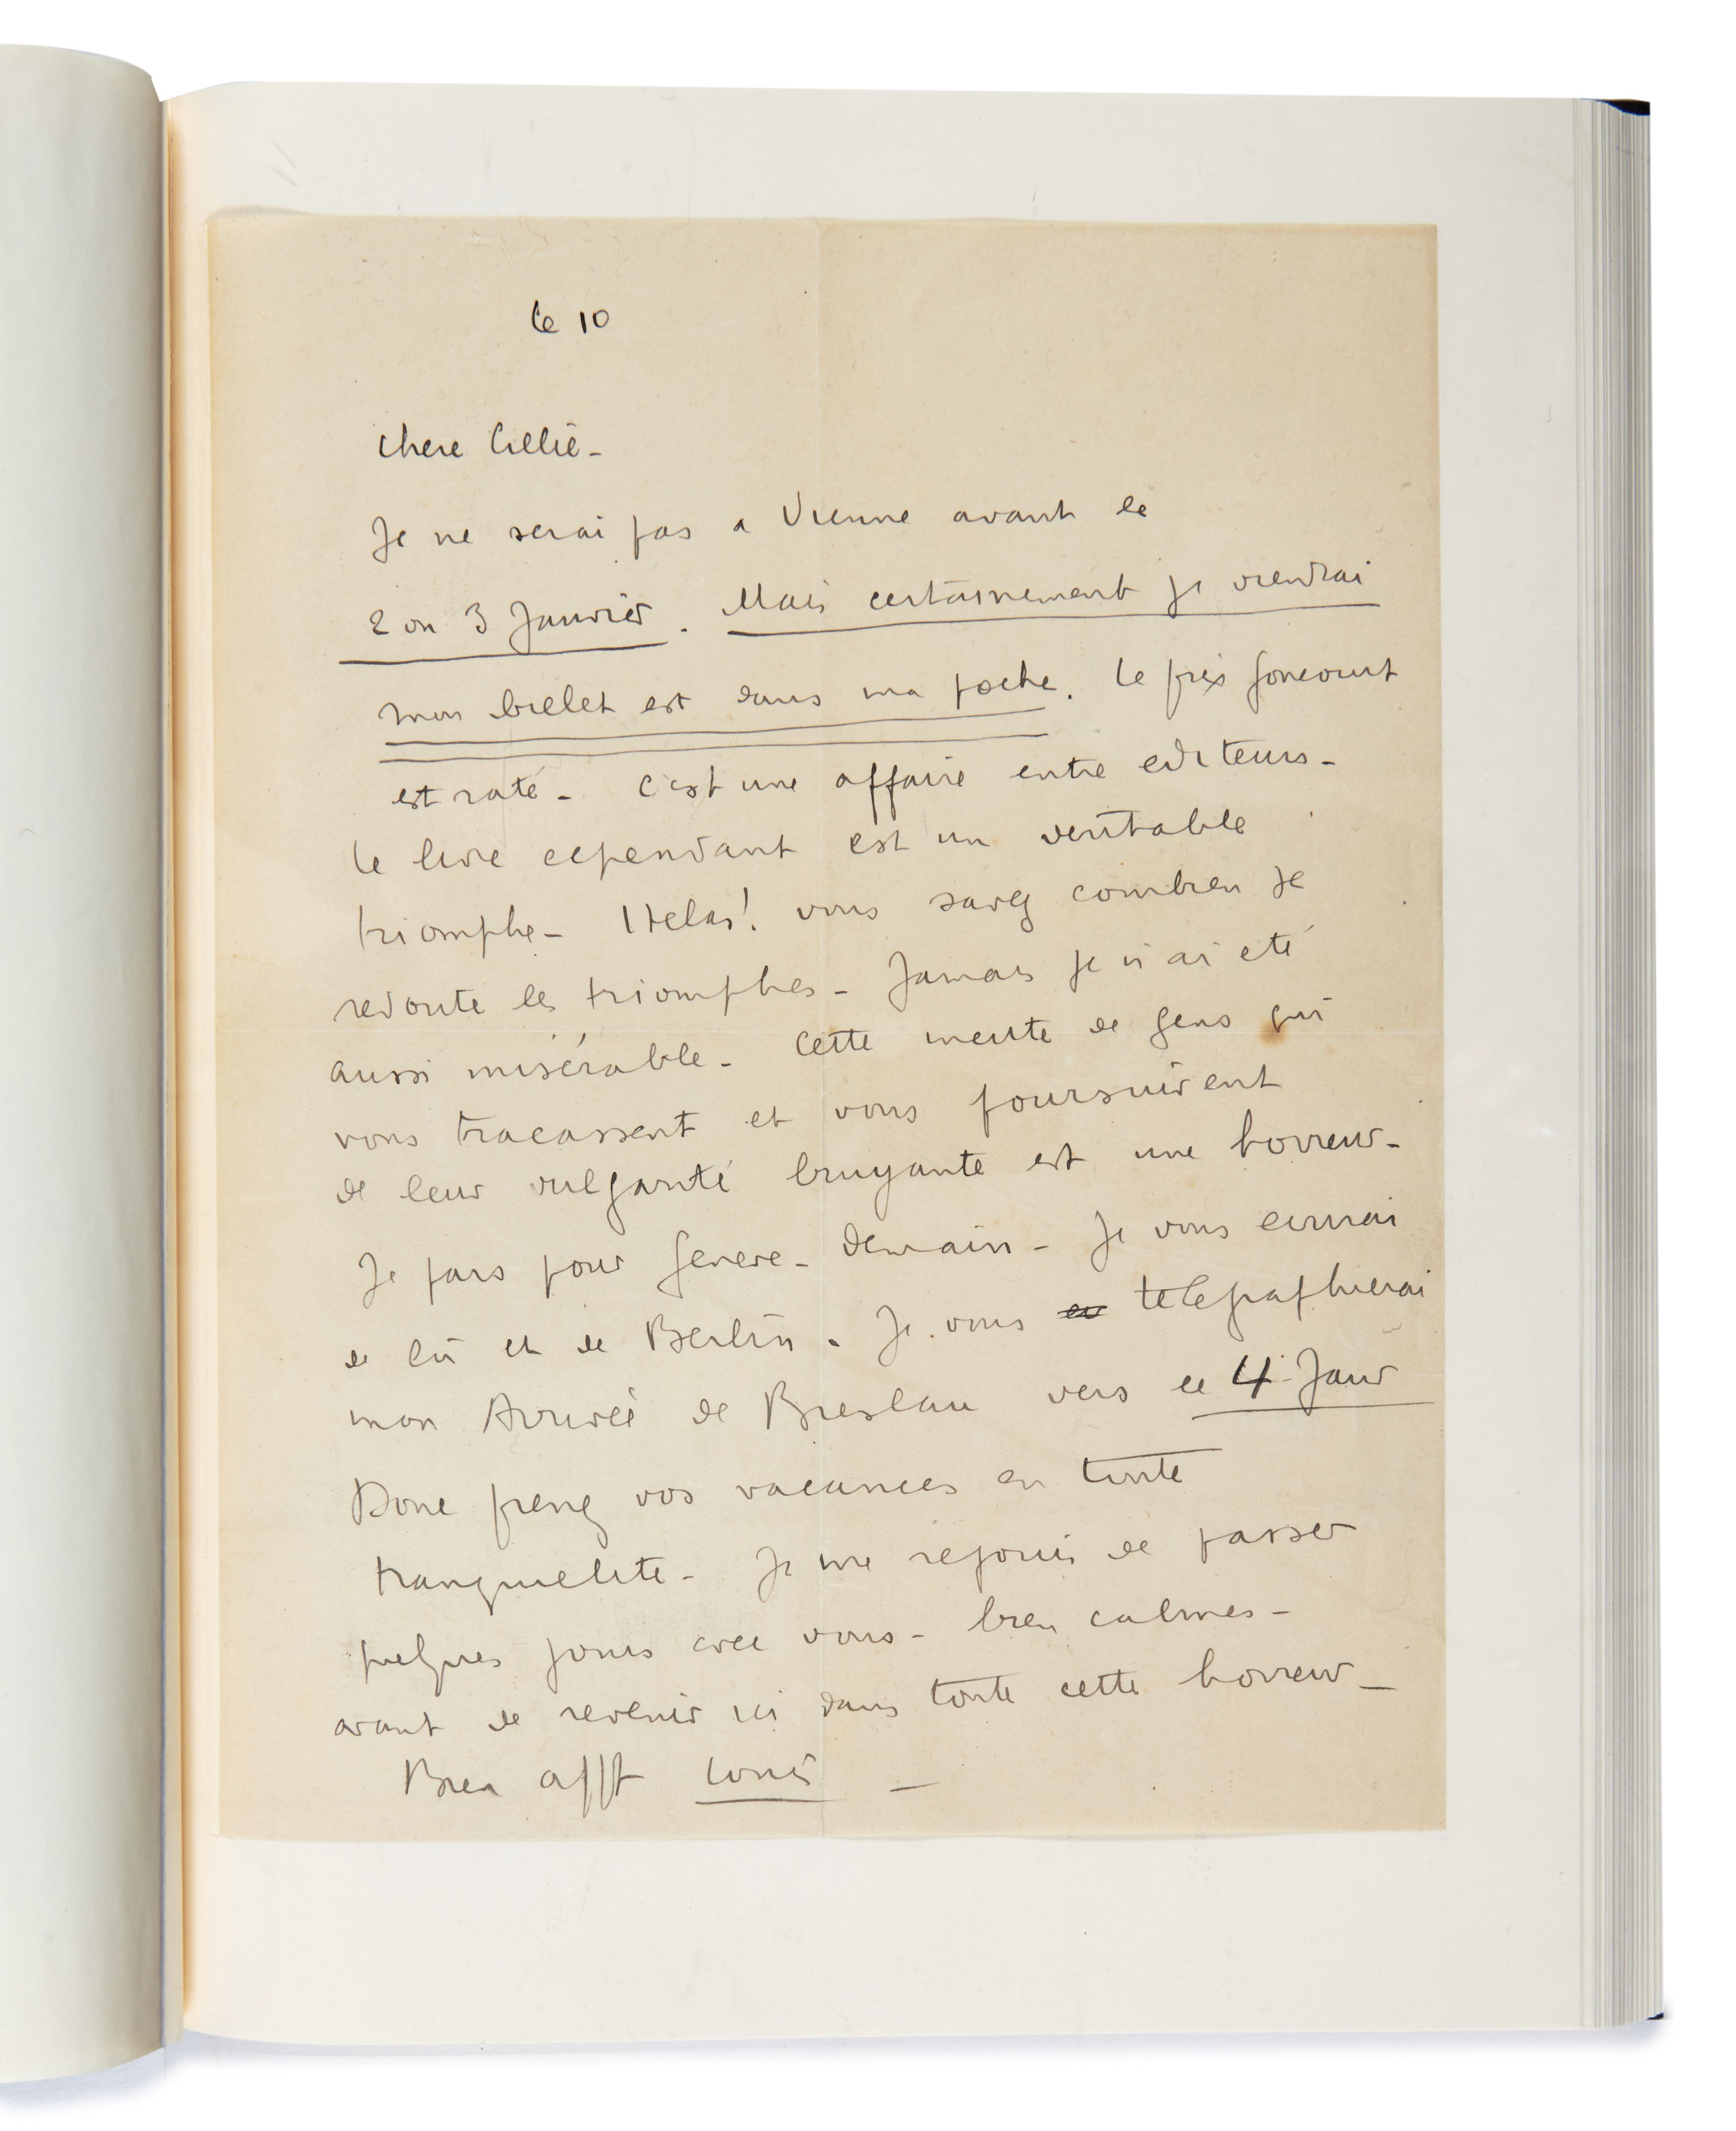 le 10
Chere Cillie -
Je ne serai pas a Vienne avant le
2 ou 3 Janvier. Mais certainement je viendrai
mon billet est dans ma poche. Le prix Goncourt
est raté - C'est une affaire entre editeurs -
Le livre cependant est un veritable
triomphe - Helas! vous savez combien je
redoute les triomphes - Jamais je n'ai eté
aussi misérable - Cette meute de gens qui
vous tracassent et vous poursuivent
de leur vulgarité bruyante est une horreur -
Je pars pour Geneve - demain - Je vous ecrirai
de là et de Berlin. Je vous telegraphierai
mon Arrivée de Breslau vers le 4 Janv
Donc prenez vos vacances en toute
tranquilite - Je me rejouis de passer
quelques jours avec vous - bien calmes -
avant de revenir ici dans toute cette horreur -
Bien afft Louis -